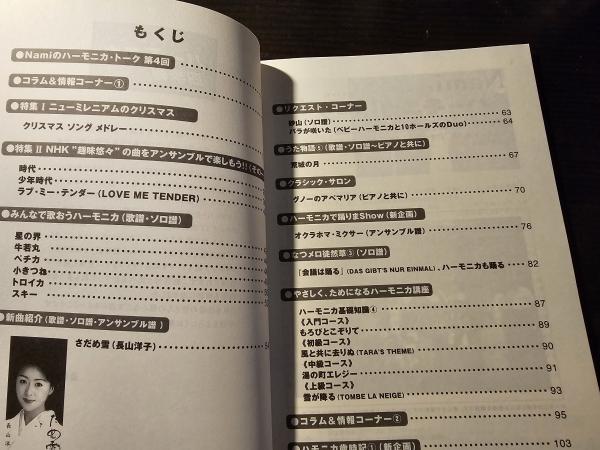 もくじ
●Namiのハーモニカ・トーク 第4回
●コラム＆情報コーナー①
●特集Ⅰ ニューミレニアムのクリスマス
クリスマス ソング メドレー
●特集Ⅱ NHK“趣味悠々”の曲をアンサンブルで楽しもう!!《その
時代
少年時代
ラブ・ミー・テンダー(LOVE ME TENDER)
●みんなで歌おうハーモニカ(歌譜・ソロ譜)
星の界
牛若丸
ペチカ
小きつね
トロイカ
スキー
●新曲紹介(歌譜・ソロ譜・アンサンブル譜)
さだめ雪(長山洋子)
●リクエスト・コーナー
砂山(ソロ譜) 63
バラが咲いた(ベビーハーモニカと10ホールズのDuo) 64
●うた物語⑤(歌譜・ソロ譜〜ピアノと共に)
荒城の月 67
●クラシック・サロン
グノーのアベマリア(ピアノと共に) 70
●ハーモニカで踊りまShow(新企画)
オクラホマ・ミクサー(アンサンブル譜) 76
●なつメロ徒然草③(ソロ譜)
「会議は踊る」(DAS GIBT'S NUR EINMAL)、ハーモニカも踊る 82
●やさしく、ためになるハーモニカ講座
ハーモニカ基礎知識④ 87
《入門コース》
もろびとこぞりて 89
《初級コース》
風と共に去りぬ(TARA'S THEME) 90
《中級コース》
湯の町エレジー 91
《上級コース》
雪が降る(TOMBE LA NEIGE) 93
●コラム＆情報コーナー② 95
●ハーモニカ歳時記①(新企画) 103